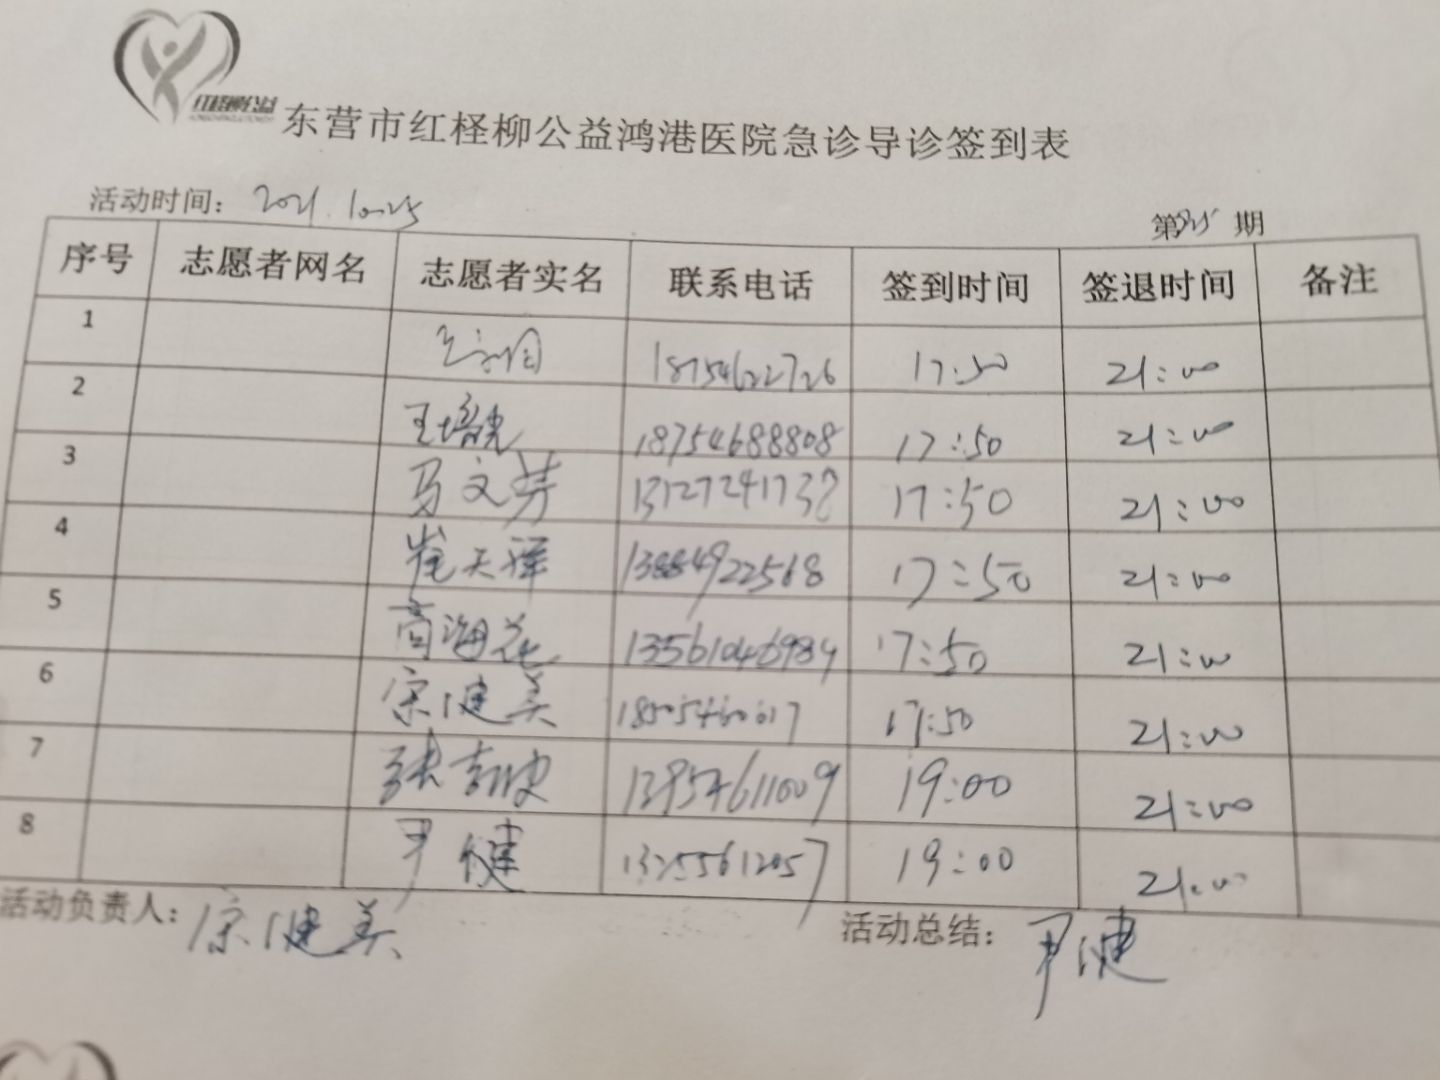 红柽柳公益
东营市红柽柳公益鸿港医院急诊导诊签到表
活动时间： 2021.10.25
第 期
序号 志愿者网名 志愿者实名 联系电话 签到时间 签退时间 备注
1 18754622726 17:50 21:00
2 王培晓 18754688808 17:50 21:00
3 马文芳 13127241738 17:50 21:00
4 崔天泽 13884922568 17:50 21:00
5 商海花 13561046984 17:50 21:00
6 宗健美 18505460617 17:50 21:00
7 张吉史 13954611009 19:00 21:00
8 尹健 13255612057 19:00 21:00
活动负责人： 宗健美
活动总结： 尹健